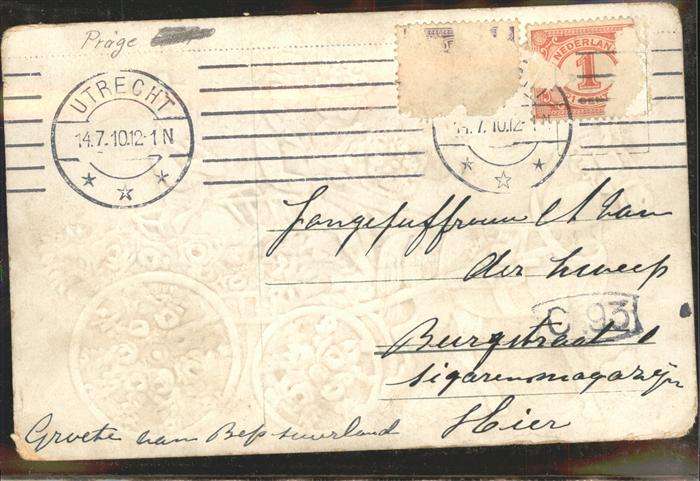 Práge
UTRECHT
14.7.10.12-1N
NEDERLAND
1
CENT
14.7.10.12-1
Jongejuffrouw A Van
der Sweep
C 93
Burgstraat
sigarenmagazijn
Hier
Groete van Bep